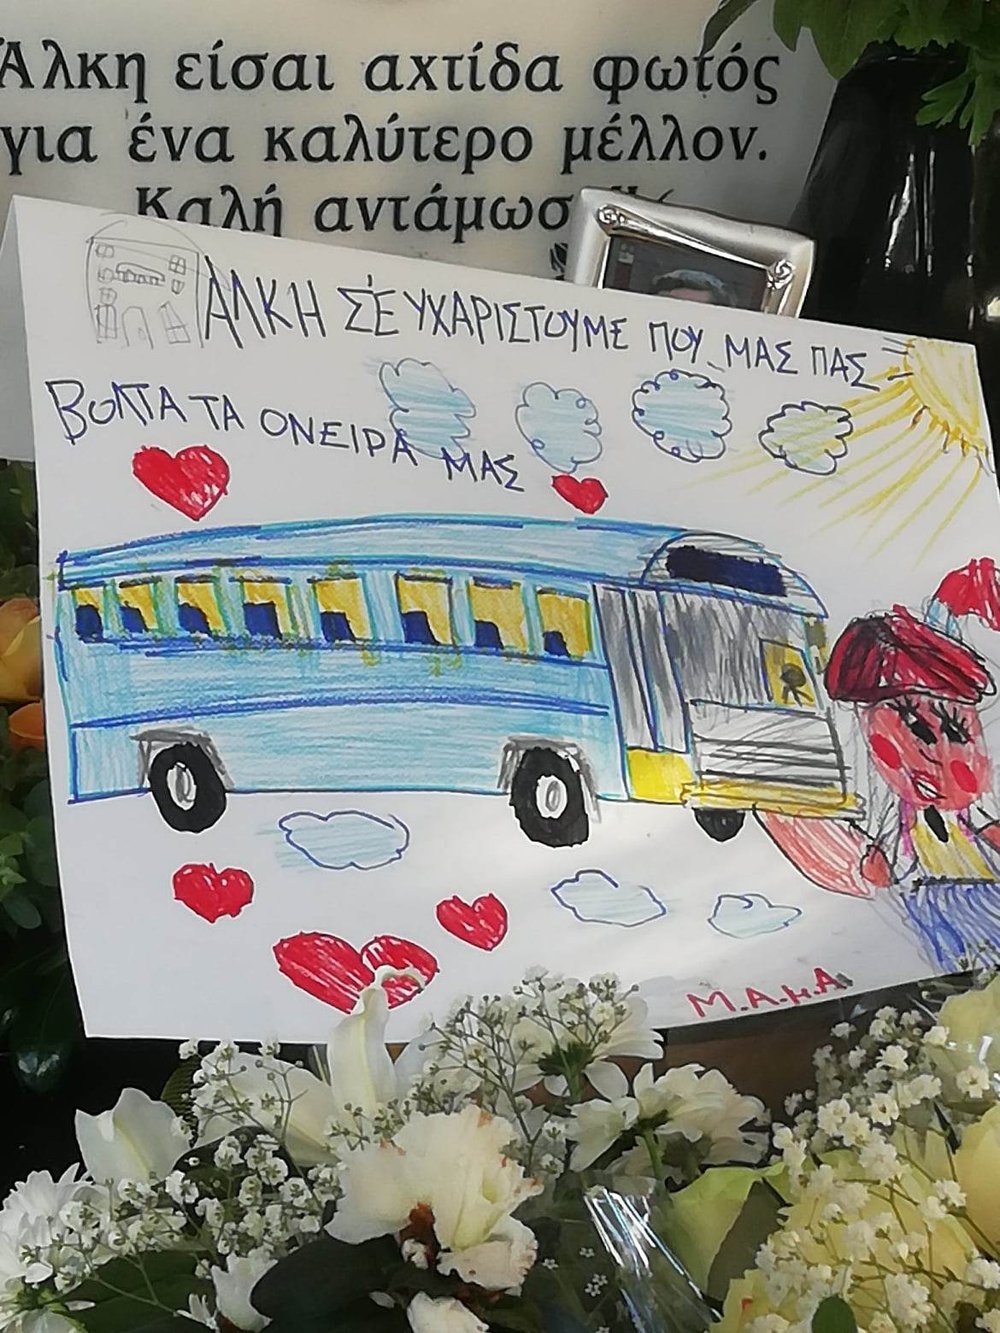 Άλκη είσαι αχτίδα φωτός
για ένα καλύτερο μέλλον.
Καλή
ΑΛΚΗ Σ'ΕΥΧΑΡΙΣΤΟΥΜΕ ΠΟΥ ΜΑΣ ΠΑΣ
ΒΟΛΤΑ ΤΑ ΟΝΕΙΡΑ ΜΑΣ
Μ.Α.μ.Α.